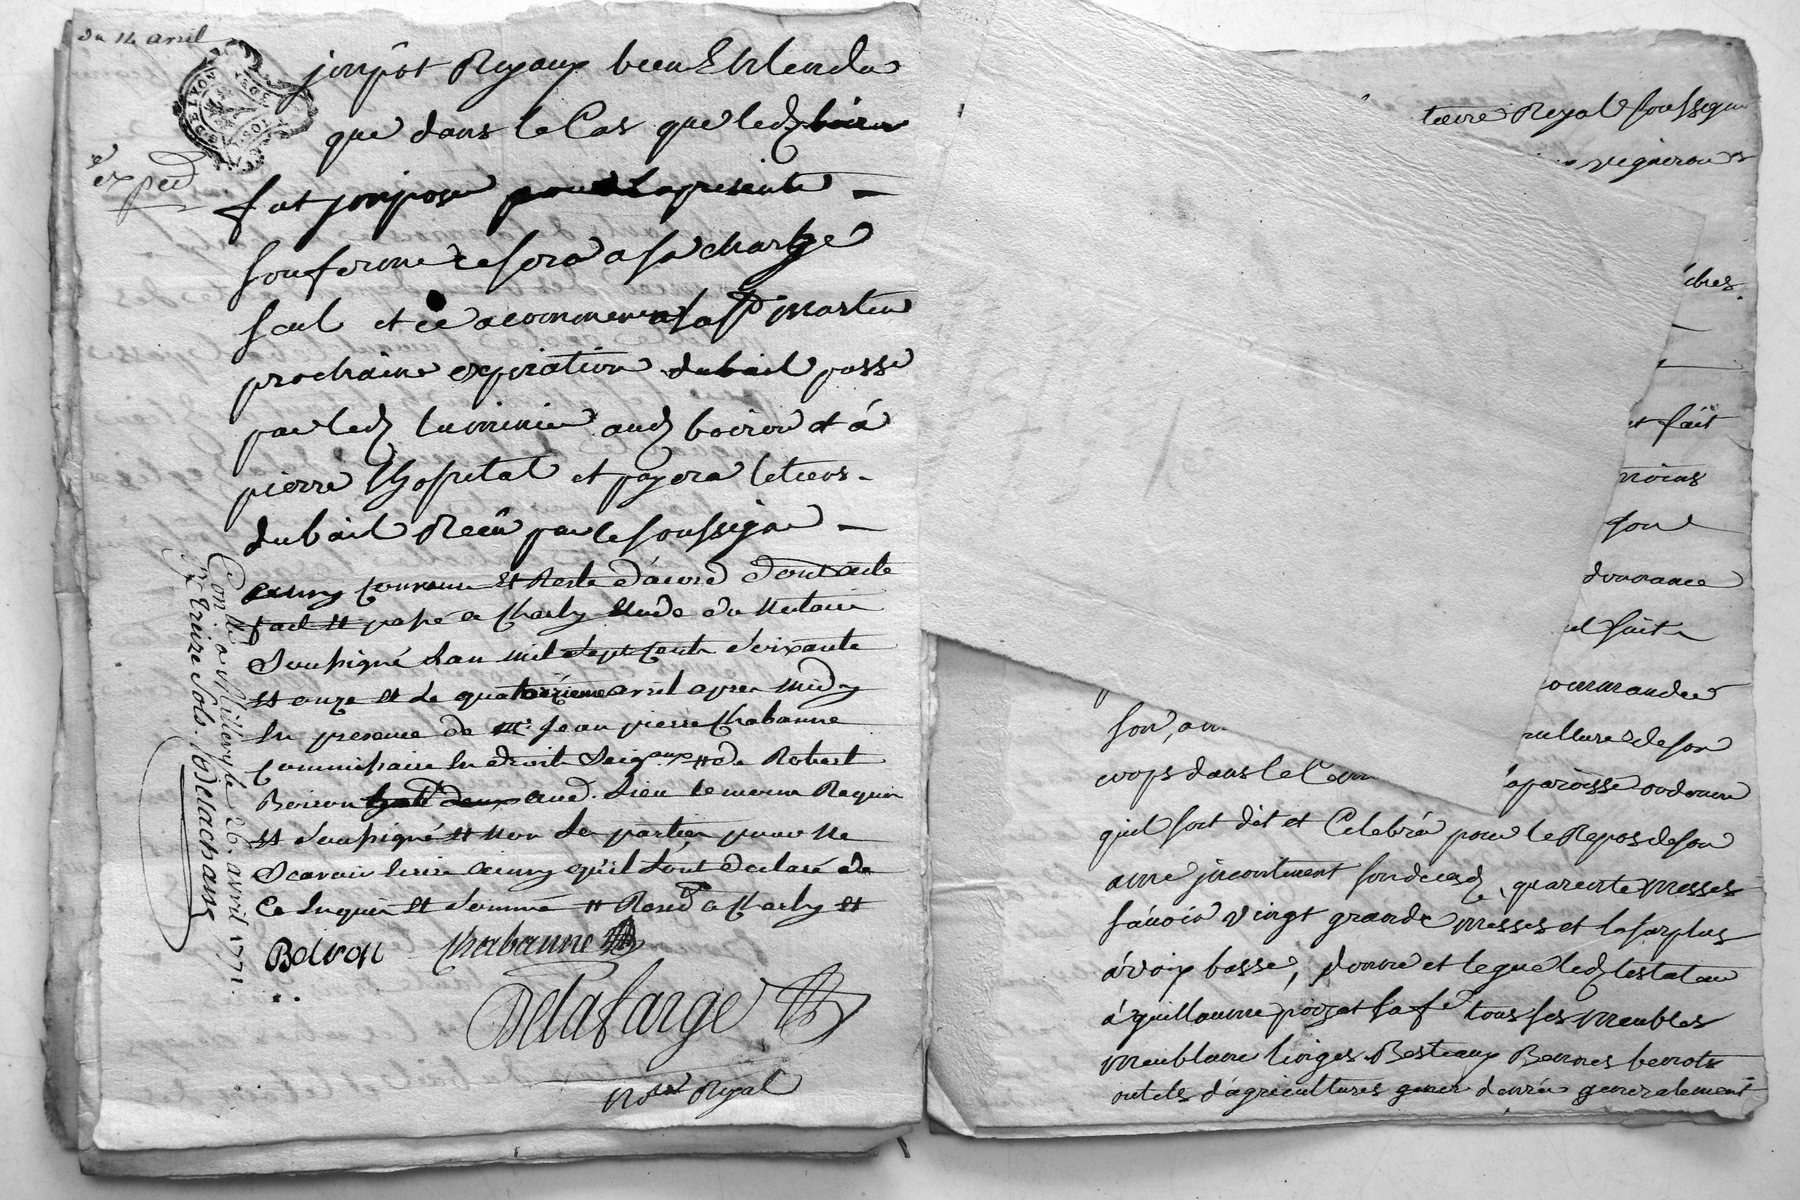 Du 14 avril
expéd
impôt Royaux bien Entendu
que dans le Cas que led boiron
fut imposé pour la presente
sousferme ce sera a sa charge
seul et ce a commencer a la St martin
prochaine expiration du bail passé
par led luminier aud boiron et à
pierre lhospital et payera le tiers
du bail Recû par le soussigné
Courane Et Reste d'acord Dont acte
fait Et passé a Charly Etude du Notaire
Soussigné L'an mil Sept Cent Soixante
Et onze Et Le quatorzieme avril apres Midy
En presence de Mr Jean pierre Chabanne
Commissaire En droits Seigaux Et de Robert
Boiron aud. Lieu temoins Requis
Et Soussigné Et Non Les parties pour Ne
Scavoir Ecrire ainsy qu'il L'ont Declaré de
Ce Enquis Et Sommé Et Resid a Charly Et
Boiron Chabanne
Delafarge
Nore Royal
Contlé a Millery le 26. avril 1771.
Rx treize Sols. Delachans
DE LYON
taire Royal soussigné
vigneron
et fait
moins
son
donnance
et fait
commandé
son am
culture de son
corps dans le
paroisse ordonne
quil soit dit et Celebré pour le Repos de son
ame jncontinent son deced, quarente messes
sávoir vingt grande messes et le surplus
à voix basse, donne et legue led testateur
à guillaume poizat sa fe tous ses meubles
meublant linges Bestiaux Bennes benots
outils d'agricultures denrée generalement